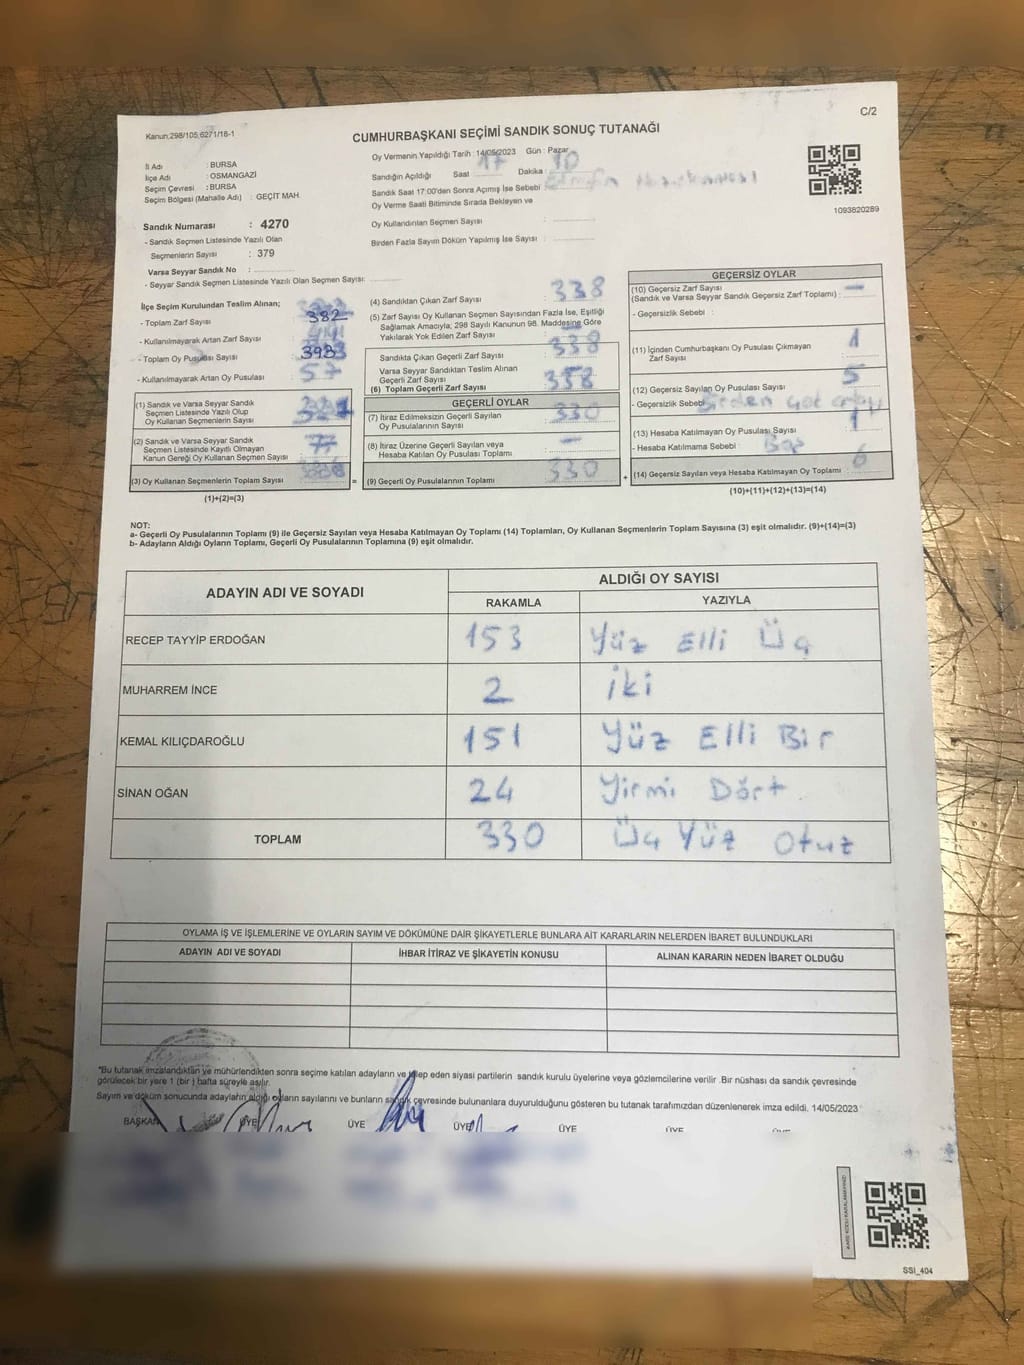 C/2
Kanun:298/105;6271/18-1
CUMHURBAŞKANI SEÇİMİ SANDIK SONUÇ TUTANAĞI
İl Adı : BURSA
İlçe Adı : OSMANGAZİ
Seçim Çevresi : BURSA
Seçim Bölgesi (Mahalle Adı) : GEÇİT MAH.
Oy Vermenin Yapıldığı Tarih : 14/05/2023 Gün : Pazar
Sandığın Açıldığı Saat 17 Dakika : 10
Sandık Saat 17:00'den Sonra Açımış İse Sebebi
Oy Verme Saati Bitiminde Sırada Bekleyen ve
Oy Kullandırılan Seçmen Sayısı :
Birden Fazla Sayım Döküm Yapılmış İse Sayısı :
1093820289
Sandık Numarası : 4270
- Sandık Seçmen Listesinde Yazılı Olan
Seçmenlerin Sayısı : 379
Varsa Seyyar Sandık No :
- Seyyar Sandık Seçmen Listesinde Yazılı Olan Seçmen Sayısı:
İlçe Seçim Kurulundan Teslim Alınan;
- Toplam Zarf Sayısı : 382
- Kullanılmayarak Artan Zarf Sayısı :
- Toplam Oy Pusulası Sayısı :
- Kullanılmayarak Artan Oy Pusulası : 57
(1) Sandık ve Varsa Seyyar Sandık
Seçmen Listesinde Yazılı Olup
Oy Kullanan Seçmenlerin Sayısı :
(2) Sandık ve Varsa Seyyar Sandık
Seçmen Listesinde Kayıtlı Olmayan
Kanun Gereği Oy Kullanan Seçmen Sayısı :
(3) Oy Kullanan Seçmenlerin Toplam Sayısı
(1)+(2)=(3)
(4) Sandıktan Çıkan Zarf Sayısı : 338
(5) Zarf Sayısı Oy Kullanan Seçmen Sayısından Fazla İse, Eşitliği
Sağlamak Amacıyla; 298 Sayılı Kanunun 98. Maddesine Göre
Yakılarak Yok Edilen Zarf Sayısı : —
Sandıkta Çıkan Geçerli Zarf Sayısı : 338
Varsa Seyyar Sandıktan Teslim Alınan
Geçerli Zarf Sayısı :
(6) Toplam Geçerli Zarf Sayısı 338
GEÇERLİ OYLAR
(7) İtiraz Edilmeksizin Geçerli Sayılan
Oy Pusulalarının Sayısı : 330
(8) İtiraz Üzerine Geçerli Sayılan veya
Hesaba Katılan Oy Pusulası Toplamı : —
= (9) Geçerli Oy Pusulalarının Toplamı 330 +
GEÇERSİZ OYLAR
(10) Geçersiz Zarf Sayısı
(Sandık ve Varsa Seyyar Sandık Geçersiz Zarf Toplamı) : —
- Geçersizlik Sebebi :
(11) İçinden Cumhurbaşkanı Oy Pusulası Çıkmayan
Zarf Sayısı : 1
(12) Geçersiz Sayılan Oy Pusulası Sayısı : 5
- Geçersizlik Sebebi
(13) Hesaba Katılmayan Oy Pusulası Sayısı : 1
- Hesaba Katılmama Sebebi :
(14) Geçersiz Sayılan veya Hesaba Katılmayan Oy Toplamı 6
(10)+(11)+(12)+(13)=(14)
NOT:
a- Geçerli Oy Pusulalarının Toplamı (9) ile Geçersiz Sayılan veya Hesaba Katılmayan Oy Toplamı (14) Toplamları, Oy Kullanan Seçmenlerin Toplam Sayısına (3) eşit olmalıdır. (9)+(14)=(3)
b- Adayların Aldığı Oyların Toplamı, Geçerli Oy Pusulalarının Toplamına (9) eşit olmalıdır.
ADAYIN ADI VE SOYADI ALDIĞI OY SAYISI
RAKAMLA YAZIYLA
RECEP TAYYİP ERDOĞAN 153 Yüz Elli Üç
MUHARREM İNCE 2 iki
KEMAL KILIÇDAROĞLU 151 Yüz Elli Bir
SİNAN OĞAN 24 Yirmi Dört
TOPLAM 330 Üç Yüz Otuz
OYLAMA İŞ VE İŞLEMLERİNE VE OYLARIN SAYIM VE DÖKÜMÜNE DAİR ŞİKAYETLERLE BUNLARA AİT KARARLARIN NELERDEN İBARET BULUNDUKLARI
ADAYIN ADI VE SOYADI İHBAR İTİRAZ VE ŞİKAYETİN KONUSU ALINAN KARARIN NEDEN İBARET OLDUĞU
"Bu tutanak imzalandıktan ve mühürlendikten sonra seçime katılan adayların ve talep eden siyasi partilerin sandık kurulu üyelerine veya gözlemcilerine verilir .Bir nüshası da sandık çevresinde
görülecek bir yere 1 (bir ) hafta süreyle asılır.
Sayım ve döküm sonucunda adayların aldığı oyların sayılarını ve bunların sandık çevresinde bulunanlara duyurulduğunu gösteren bu tutanak tarafımızdan düzenlenerek imza edildi. 14/05/2023
BAŞKAN ÜYE ÜYE ÜYE ÜYE ÜYE
SSİ_404